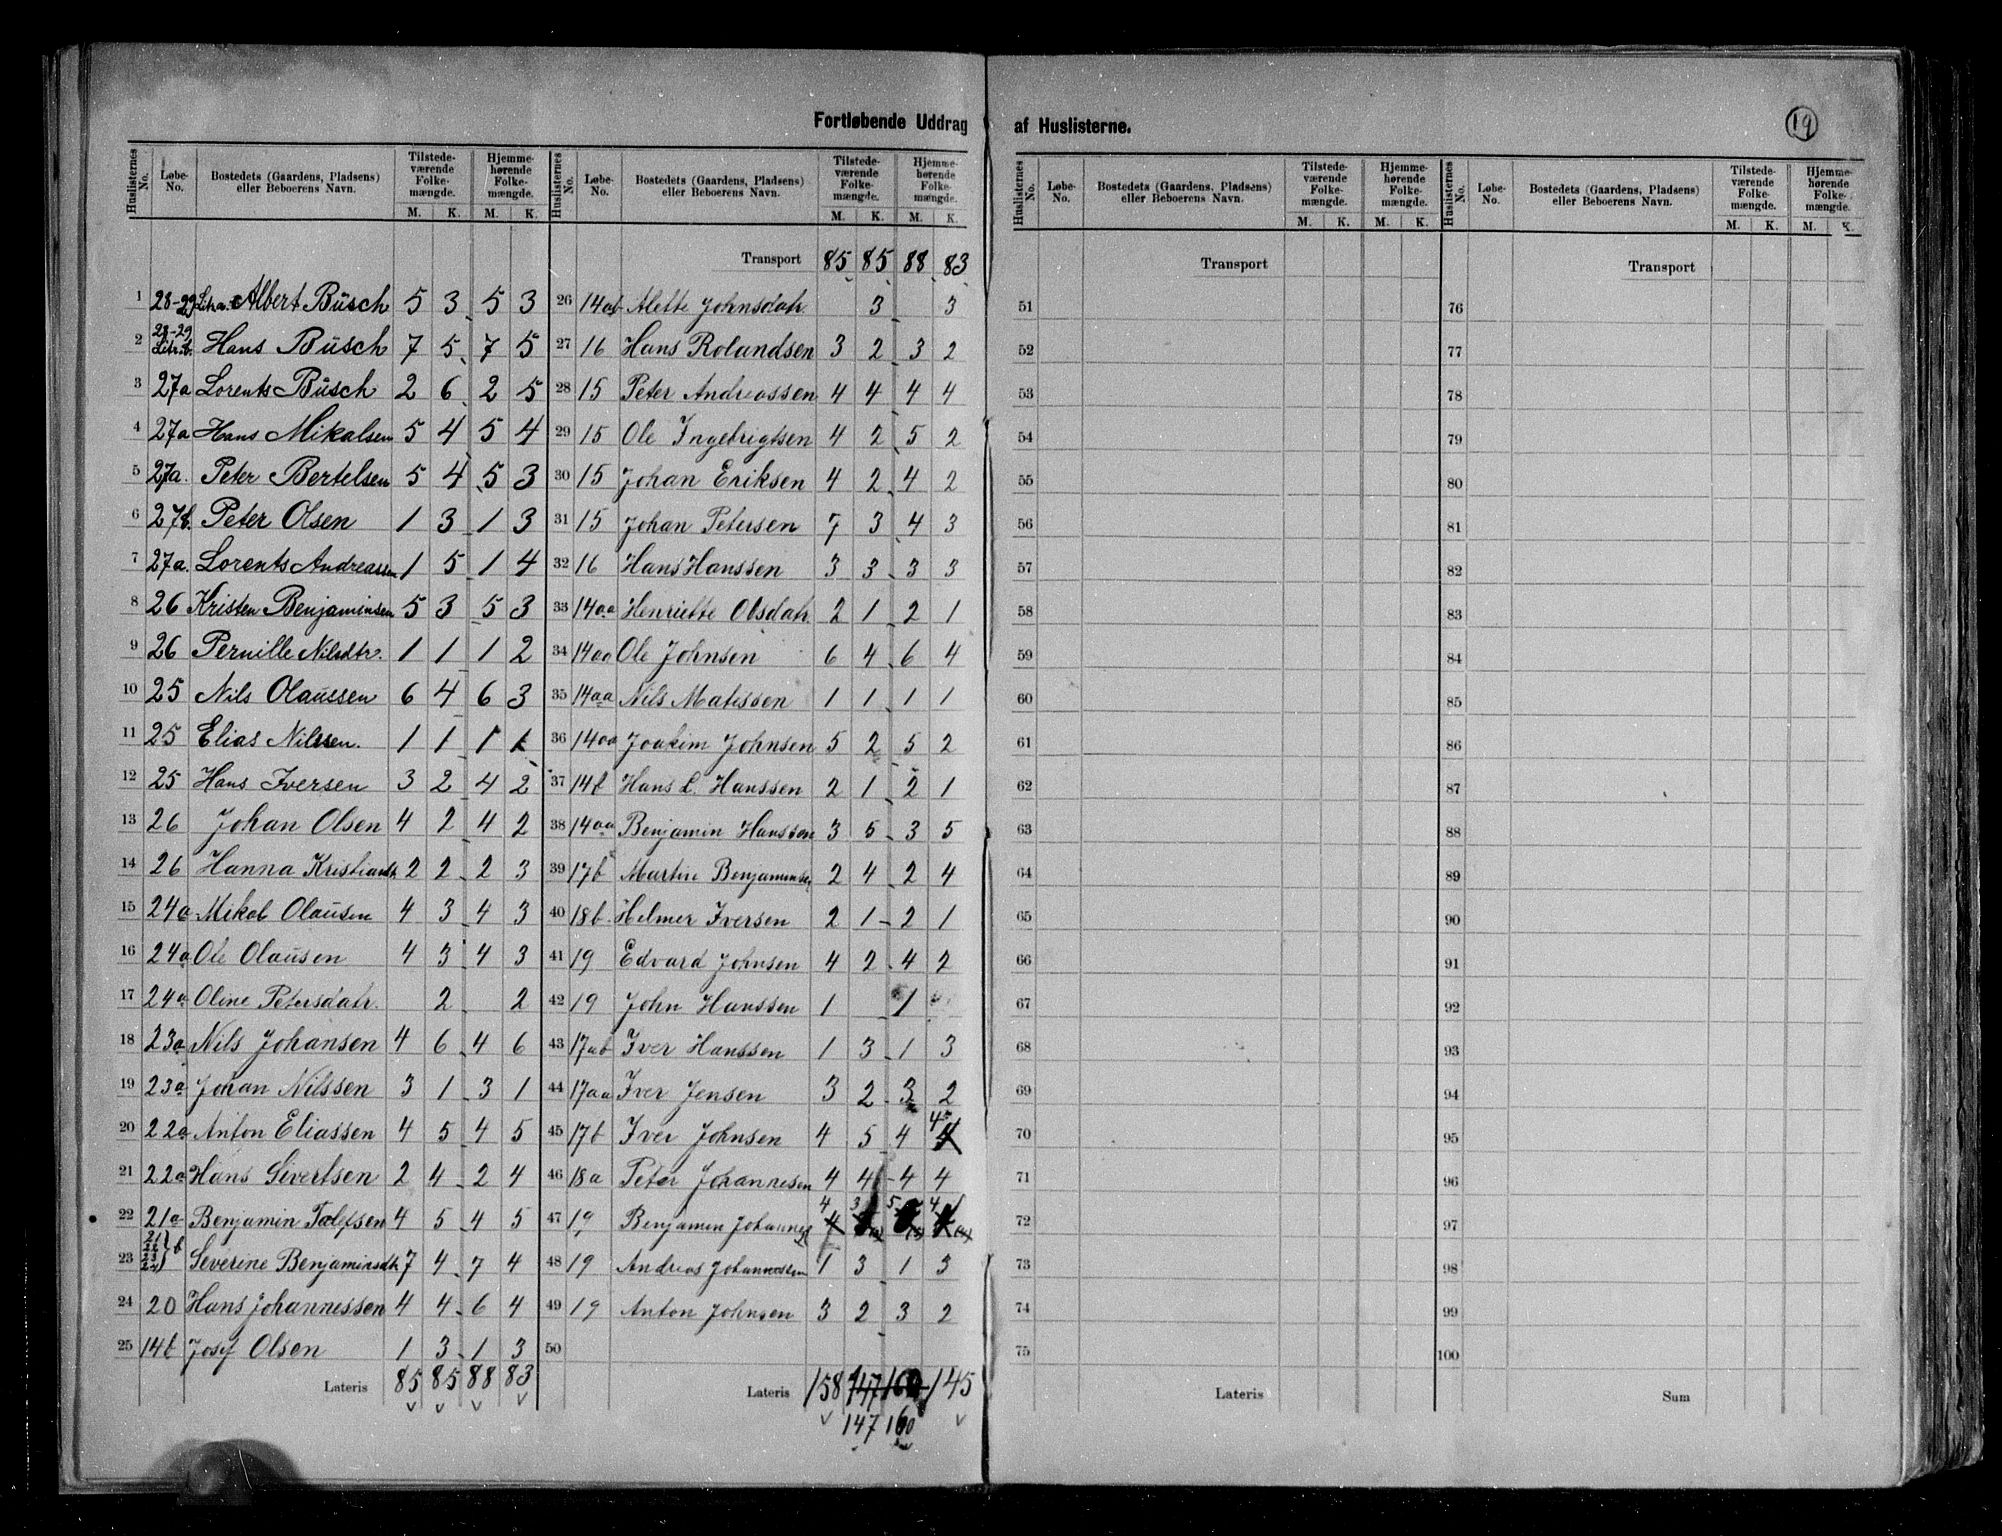 Fortløbende Uddrag af Huslisterne.
19
Huslisternes No. Løbe-No. Bostedets (Gaardens, Pladsens) eller Beboerens Navn. Tilstedeværende Folkemængde. M. K. Hjemmehørende Folkemængde. M. K.
1 28-29 Litr. a Albert Büsch 5 3 5 3
2 28-29 Litr. b. Hans Büsch 7 5 7 5
3 27a Lorents Büsch 2 6 2 5
4 27a Hans Mikalsen 5 4 5 4
5 27a. Peter Bertelsen 5 4 5 3
6 27b. Peter Olsen 1 3 1 3
7 27a. Lorents Andreassen 1 5 1 4
8 26 Kristen Benjaminsen 5 3 5 3
9 26 Pernille Nilsdtr. 1 1 1 2
10 25 Nils Olaussen 6 4 6 3
11 25 Elias Nilssen. 1 1 1 1
12 25 Hans Iversen 3 2 4 2
13 26 Johan Olsen 4 2 4 2
14 26 Hanna Kristiansdt. 2 2 2 3
15 24a Mikal Olausen 4 3 4 3
16 24a Ole Olausen 4 3 4 3
17 24a Oline Petersdatr. 2 2
18 23a Nils Johansen 4 6 4 6
19 23a Johan Nilssen 3 1 3 1
20 22a Anton Eliassen 4 5 4 5
21 22a Hans Sivertsen 2 4 2 4
22 21a Benjamin Tolefsen 4 5 4 5
23 21 22 23 24 b Severine Benjaminsdtr 7 4 7 4
24 20 Hans Johannessen 4 4 6 4
25 14b Josef Olsen 1 3 1 3
Lateris 85 85 88 83
Huslisternes No. Løbe-No. Bostedets (Gaardens, Pladsens) eller Beboerens Navn. Tilstedeværende Folkemængde. M. K. Hjemmehørende Folkemængde. M. K.
Transport 85 85 88 83
26 14ab Alette Johnsdatr. 3 3
27 16 Hans Rolandsen 3 2 3 2
28 15 Peter Andreassen 4 4 4 4
29 15 Ole Ingebrigtsen 4 2 5 2
30 15 Johan Eriksen 4 2 4 2
31 15 Johan Petersen 7 3 4 3
32 16 Hans Hanssen 3 3 3 3
33 14aa Henriette Olsdatr. 2 1 2 1
34 14aa Ole Johnsen 6 4 6 4
35 14aa Nils Matissen 1 1 1 1
36 14aa Joakim Johnsen 5 2 5 2
37 14b Hans L. Hanssen 2 1 2 1
38 14aa Benjamin Hanssen 3 5 3 5
39 17b Martin Benjaminsen 2 4 2 4
40 18b. Helmer Iversen 2 1 2 1
41 19 Edvard Johnsen 4 2 4 2
42 19 John Hanssen 1 1
43 17ab Iver Hanssen 1 3 1 3
44 17aa Iver Jensen 3 2 3 2
45 17b Iver Johnsen 4 5 4 4
46 18a Peter Johannesen 4 4 4 4
47 19 Benjamin Johannes 4 3 5 4
48 19 Andreas Johannessen 1 3 1 3
49 19 Anton Johnsen 3 2 3 2
50
Lateris 158 147 160 145
147 160
Huslisternes No. Løbe-No. Bostedets (Gaardens, Pladsens) eller Beboerens Navn. Tilstedeværende Folkemængde. M. K. Hjemmehørende Folkemængde. M. K.
Transport
51
52
53
54
55
56
57
58
59
60
61
62
63
64
65
66
67
68
69
70
71
72
73
74
75
Lateris
Huslisternes No. Løbe-No. Bostedets (Gaardens, Pladsens) eller Beboerens Navn. Tilstedeværende Folkemængde. M. K. Hjemmehørende Folkemængde. M. K.
Transport
76
77
78
79
80
81
82
83
84
85
86
87
88
89
90
91
92
93
94
95
96
97
98
99
100
Sum